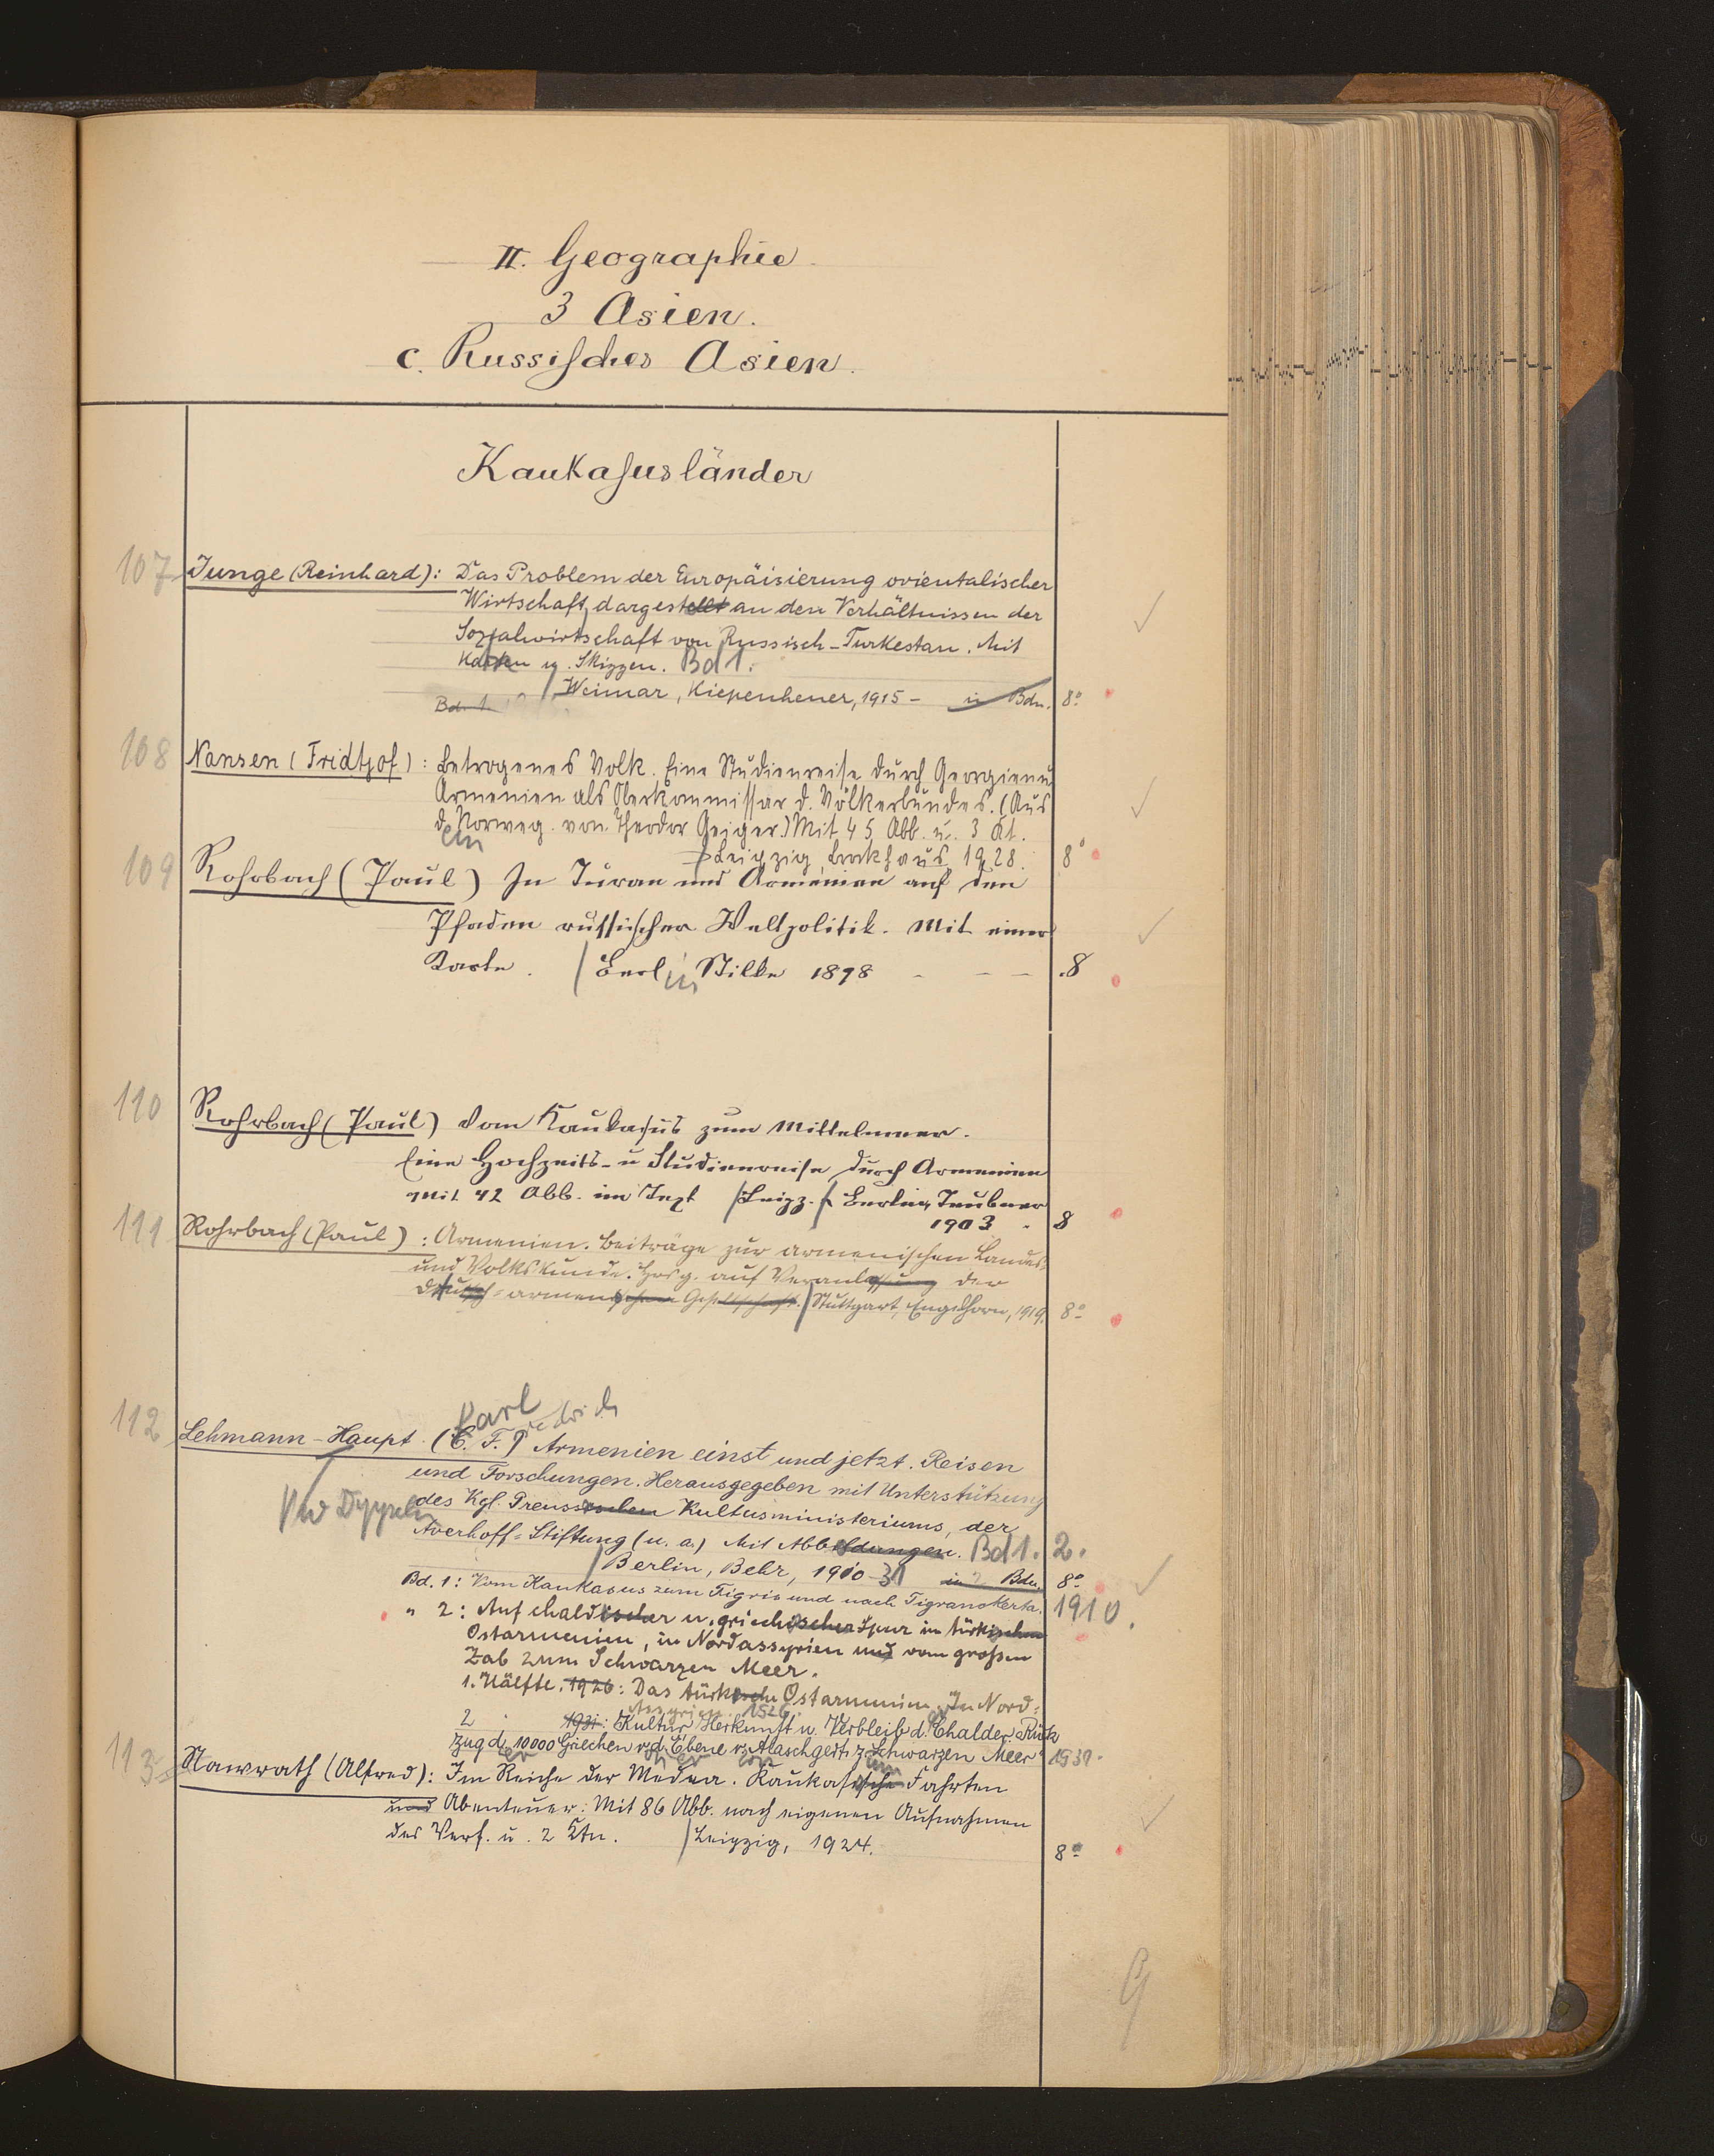 II. Geographie
3 Asien.
c. Russisches Asien.
Kaukasusländer
107 Junge (Reinhard): Das Problem der Europäisierung orientalischer
Wirtschaft dargestellt an den Verhältnissen der
Sozialwirtschaft von Russisch-Turkestan. Mit
Karten u. Skizzen. Bd 1.
Bd. 1. / Weimar, Kiepenheuer, 1915 – in Bdn. 8°
108 Nansen (Fridtjof): Betrogenes Volk. Eine Studienreise durch Georgien u
Armenien als Oberkommissar d. Völkerbundes. (Aus
d. Norweg. von Theodor Geiger.) Mit 45 Abb. u. 3 Kt.
em
Leipzig Brockhaus 1928. 8°
109 Rohrbach (Paul) In Turan und Armenien auf den
Pfaden russischer Weltpolitik. Mit einer
Karte. / Berlin Stilke 1898 – – – 8
110 Rohrbach (Paul) Vom Kaukasus zum Mittelmeer.
Eine Hochzeits- u Studienreise durch Armenien
Mit 42 Abb. im Text / Leipz. / Berlin, Teubner
1903 . 8
111 Rohrbach (Paul): Armenien. Beiträge zur armenischen Landes-
und Volkskunde. Hrsg. auf Veranlassung der
deutsch-armenischen Gesellschaft. / Stuttgart, Engelhorn, 1919. 8°
Karl
112 Lehmann-Haupt (C. F.) Armenien einst und jetzt. Reisen
und Forschungen. Herausgegeben mit Unterstützung
des Kgl. Preussischen Kultusministeriums, der
Averhoff-Stiftung (u. a.) Mit Abbildungen. Bd 1. 2.
/ Berlin, Behr, 1910–31 in 2 Bdn. 8°
Bd. 1: Vom Kaukasus zum Tigris und nach Tigranokerta. 1910.
" 2: Auf chaldischer u. griechischer Spur im türkischen
Ostarmenien, in Nordassyrien und vom großen
Zab zum Schwarzen Meer.
1. Hälfte. 1926: Das türkische Ostarmenien. In Nord-
Assyrien. 1926.
2 1931: Kultur, Herkunft u. Verbleib d. Chalder. Rück
zug d. 10000 Griechen v. d. Ebene v. Alaschgert z. Schwarzen Meer 1931.
113 Nawrath (Alfred): Im Reiche der Medea. Kaukasische Fahrten
und Abenteuer: Mit 86 Abb. nach eigenen Aufnahmen
des Verf. u. 2 Ktn. / Leipzig, 1924. 8°